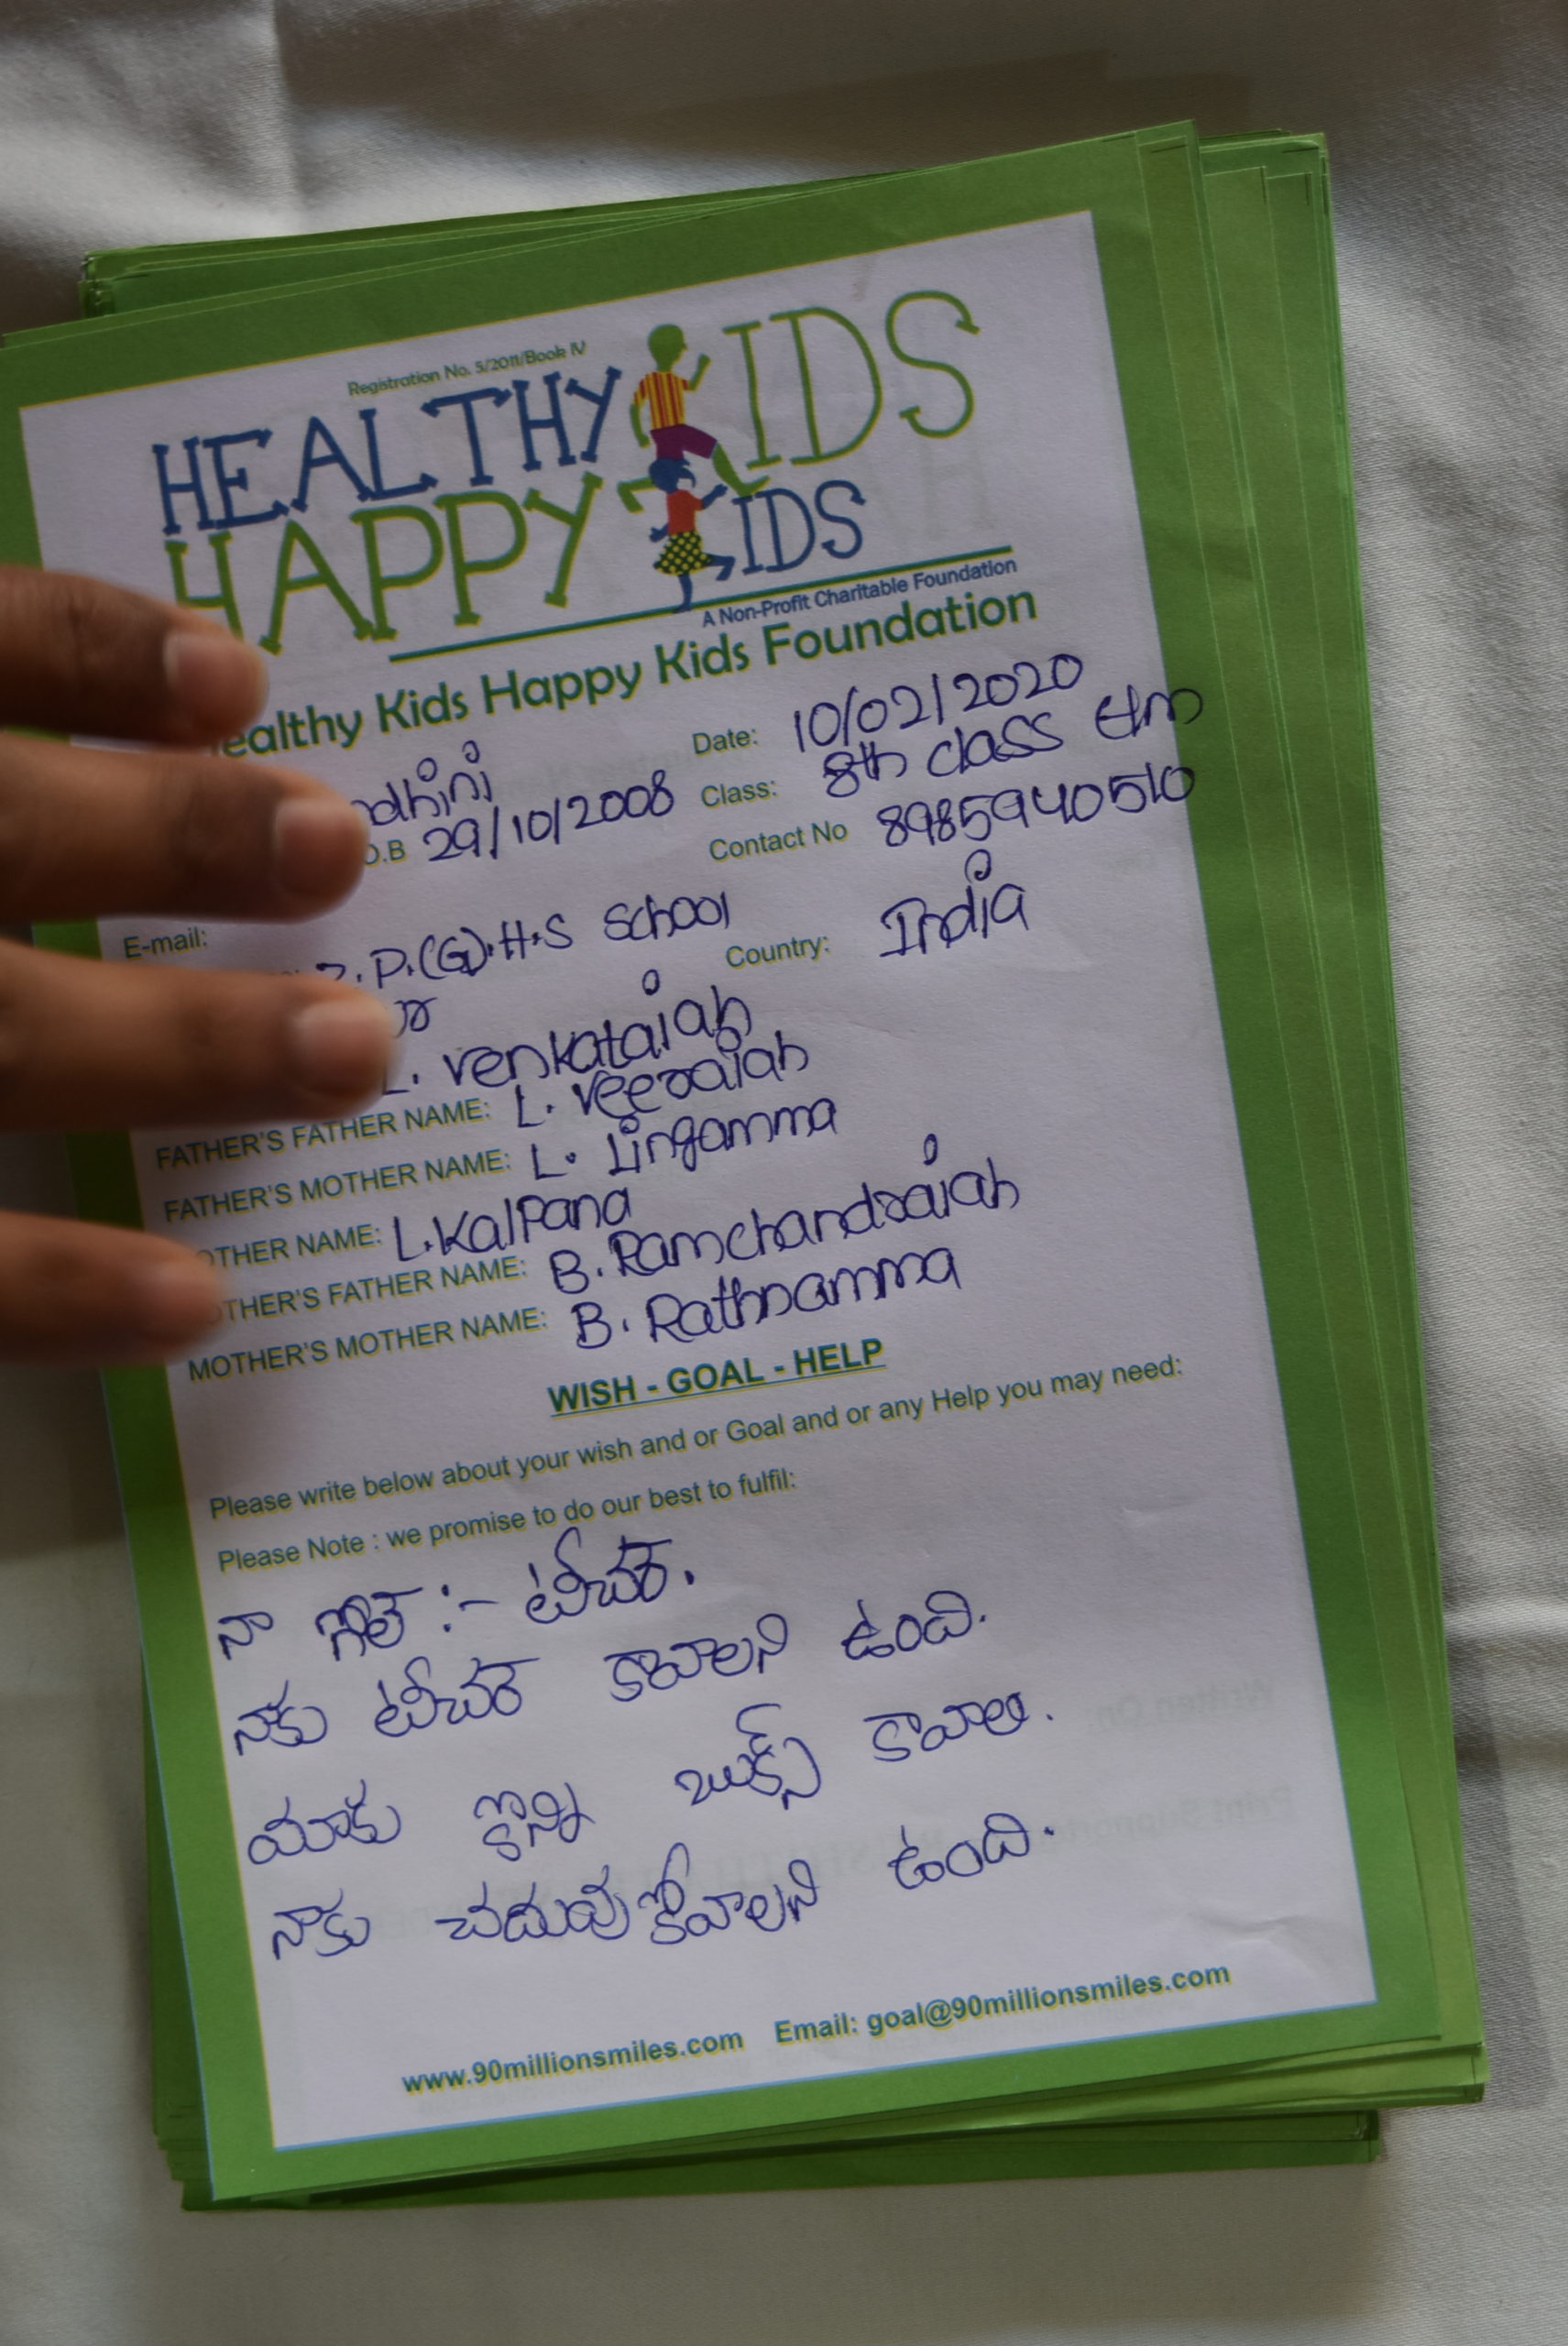 Registration No. 5/2011/Book IV
HEALTHY KIDS
HAPPY KIDS
A Non-Profit Charitable Foundation
ealthy Kids Happy Kids Foundation
ndhini Date: 10/02/2020
O.B 29/10/2008 Class: 8th class E/m
Contact No 8985940510
E-mail:
P.(G).H.S School Country: India
ur
L. Venkataiah
FATHER'S FATHER NAME: L. Veeraiah
FATHER'S MOTHER NAME: L. Lingamma
OTHER NAME: L.Kalpana
OTHER'S FATHER NAME: B. Ramchandraiah
MOTHER'S MOTHER NAME: B. Rathnamma
WISH - GOAL - HELP
Please write below about your wish and or Goal and or any Help you may need:
Please Note : we promise to do our best to fulfil:
నా గోల్ :- టీచర్.
నాకు టీచర్ కావాలని ఉంది.
మాకు కొన్ని బుక్స్ కావాలి.
నాకు చదువుకోవాలని ఉంది.
www.90millionsmiles.com Email: goal@90millionsmiles.com